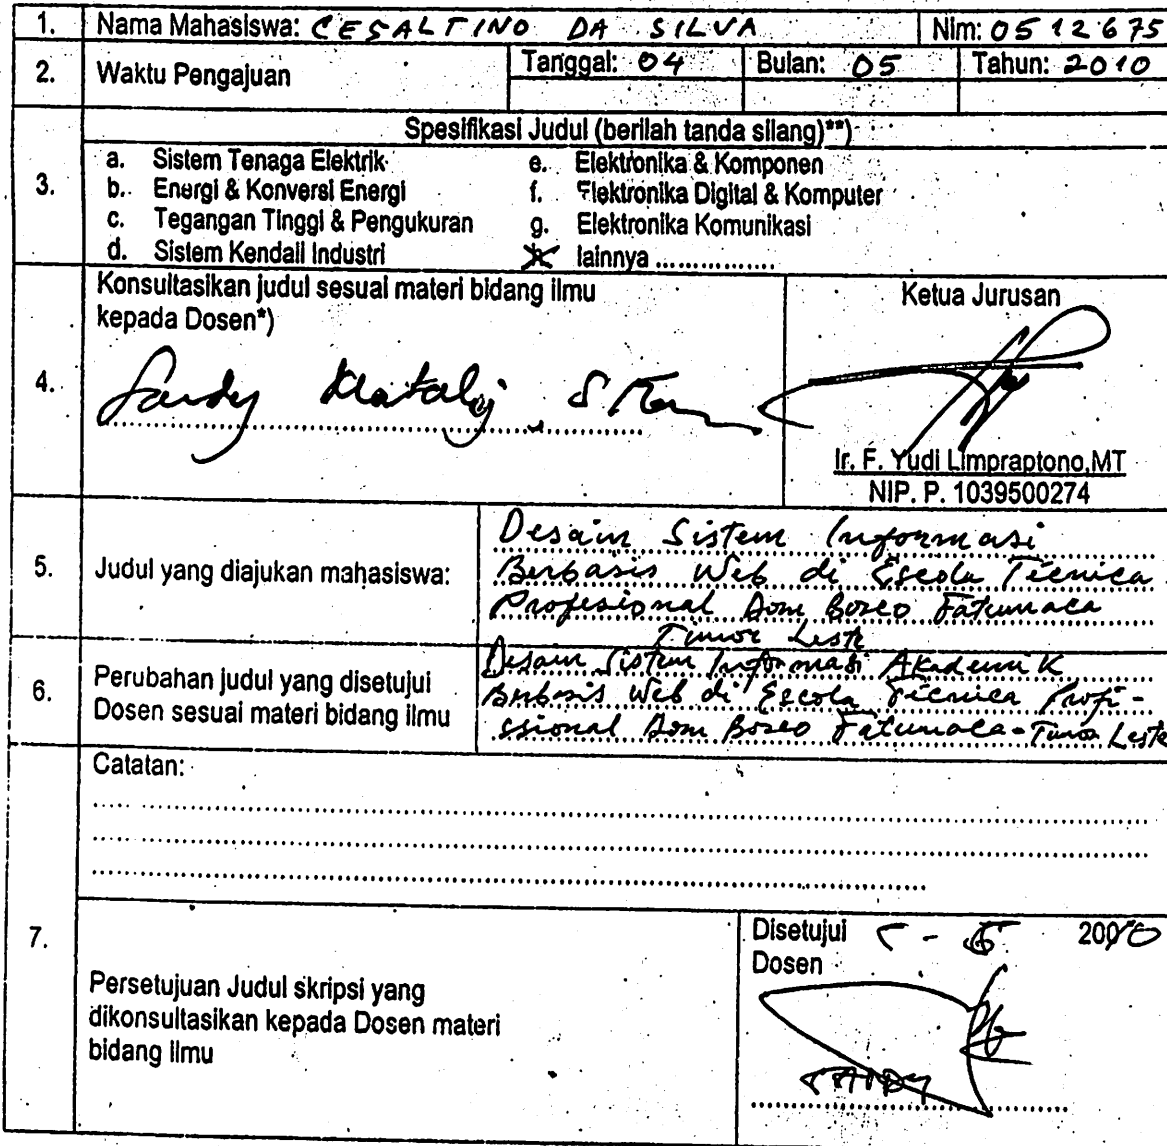 1. Nama Mahasiswa: CESALTINO DA SILVA Nim: 0512675
2. Waktu Pengajuan Tanggal: 04 Bulan: 05 Tahun: 2010
Spesifikasi Judul (berilah tanda silang)**)
3.
a. Sistem Tenaga Elektrik e. Elektronika & Komponen
b. Energi & Konversi Energi f. Elektronika Digital & Komputer
c. Tegangan Tinggi & Pengukuran g. Elektronika Komunikasi
d. Sistem Kendali Industri h lainnya ...............
Konsultasikan judul sesuai materi bidang ilmu
kepada Dosen*)
4. Sandy
Ketua Jurusan
Ir. F. Yudi Limpraptono,MT
NIP. P. 1039500274
5. Judul yang diajukan mahasiswa:
Desain Sistem Informasi
Berbasis Web di Escola Técnica
Profesional Dom Bosco Fatumaca
Timor Leste
6. Perubahan judul yang disetujui
Dosen sesuai materi bidang ilmu
Desain Sistem Informasi Akademik
Berbasis Web di Escola Técnica Profi-
ssional Dom Bosco Fatumaca - Timor Leste
7.
Catatan:
Persetujuan Judul skripsi yang
dikonsultasikan kepada Dosen materi
bidang ilmu
Disetujui 5 - 5 2010
Dosen